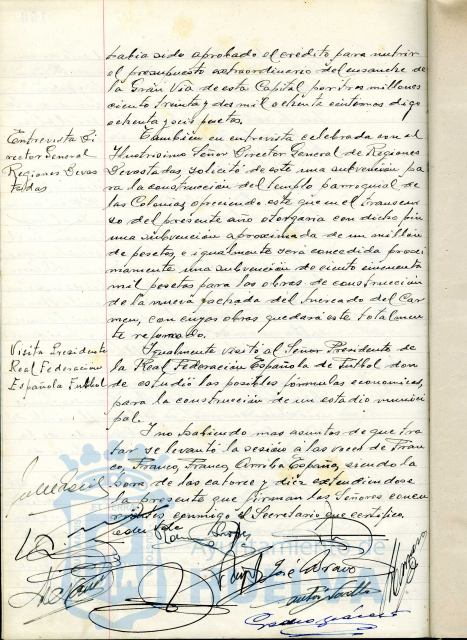 había sido aprobado el crédito para nutrir
el presupuesto extraordinario del ensanche de
la Gran Vía de esta Capital por tres millones
ciento treinta y dos mil ochenta centimos digo
ochenta y seis pesetas.
Entrevista Di
rector General
Regiones Devas
tadas
También en entrevista celebrada con el
Ilustrisimo Señor Director General de Regiones
Devastadas, solicitó de este una subvención pa
ra la construcción del templo parroquial de
las Colonias, ofreciendo este que en el transcur
so del presente año otorgaria con dicho fin
una subvención aproximada de un millón
de pesetas, e igualmente será concedida proxi
mamente una subvención de ciento cincuenta
mil pesetas para las obras de construcción
de la nueva fachada del Mercado del Car
men, con cuyas obras quedará este totalmen
te reformado.
Visita Presidente
Real Federación
Española Futbol
Igualmente visitó al Señor Presidente de
la Real Federación Española de Futbol don
de estudió las posibles fórmulas economicas,
para la construcción de un estadio munici
pal.
Y no habiendo mas asuntos de que tra
tar se levantó la sesión a las voces de Fran
co, Franco, Franco, Arriba España, siendo la
hora de las catorce y diez extendiendose
la presente que firman los Señores concu
rrentes conmigo el Secretario que certifico.
José Bravo
Ayuntamiento de
HUELVA